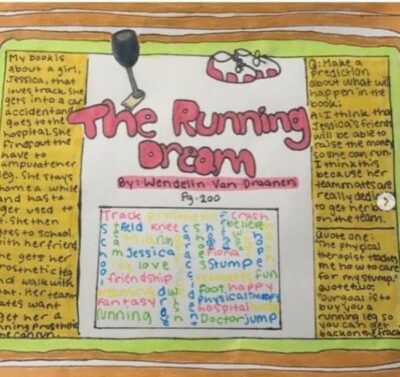 My book is
about a girl,
Jessica, that
loves track. She
gets into a car
accident and
goes to the
hospital. She
finds out the
have to
amputate her
leg. She stays
home a while
and has to
get used to
it. She then
goes to school
with her friend
gets her
prosthetic leg
and walk with
Her team
mates want
get her a
running prosthe
she can run.
The Running
Dream
By: Wendelin Van Draanen
Pg. 200
Track prosthetic crash
field knee believe
Jessica Fiona
leg love stump
friendship fun
foot happy
Fantasy Physical Therapy
hospital
running Doctor jump
Q: Make a
prediction
about what will
happen in the
book.
A: I think that
Jessica's friends
will be able to
raise the money
so she can run.
I think this
because her
teammates are
really dedica
to get her back
on the team.
Quote one:
"The physical
therapist teaches
me how to care
for my stump."
quote two:
"Our goal is to
buy you a
running leg so
you can get
back on the track